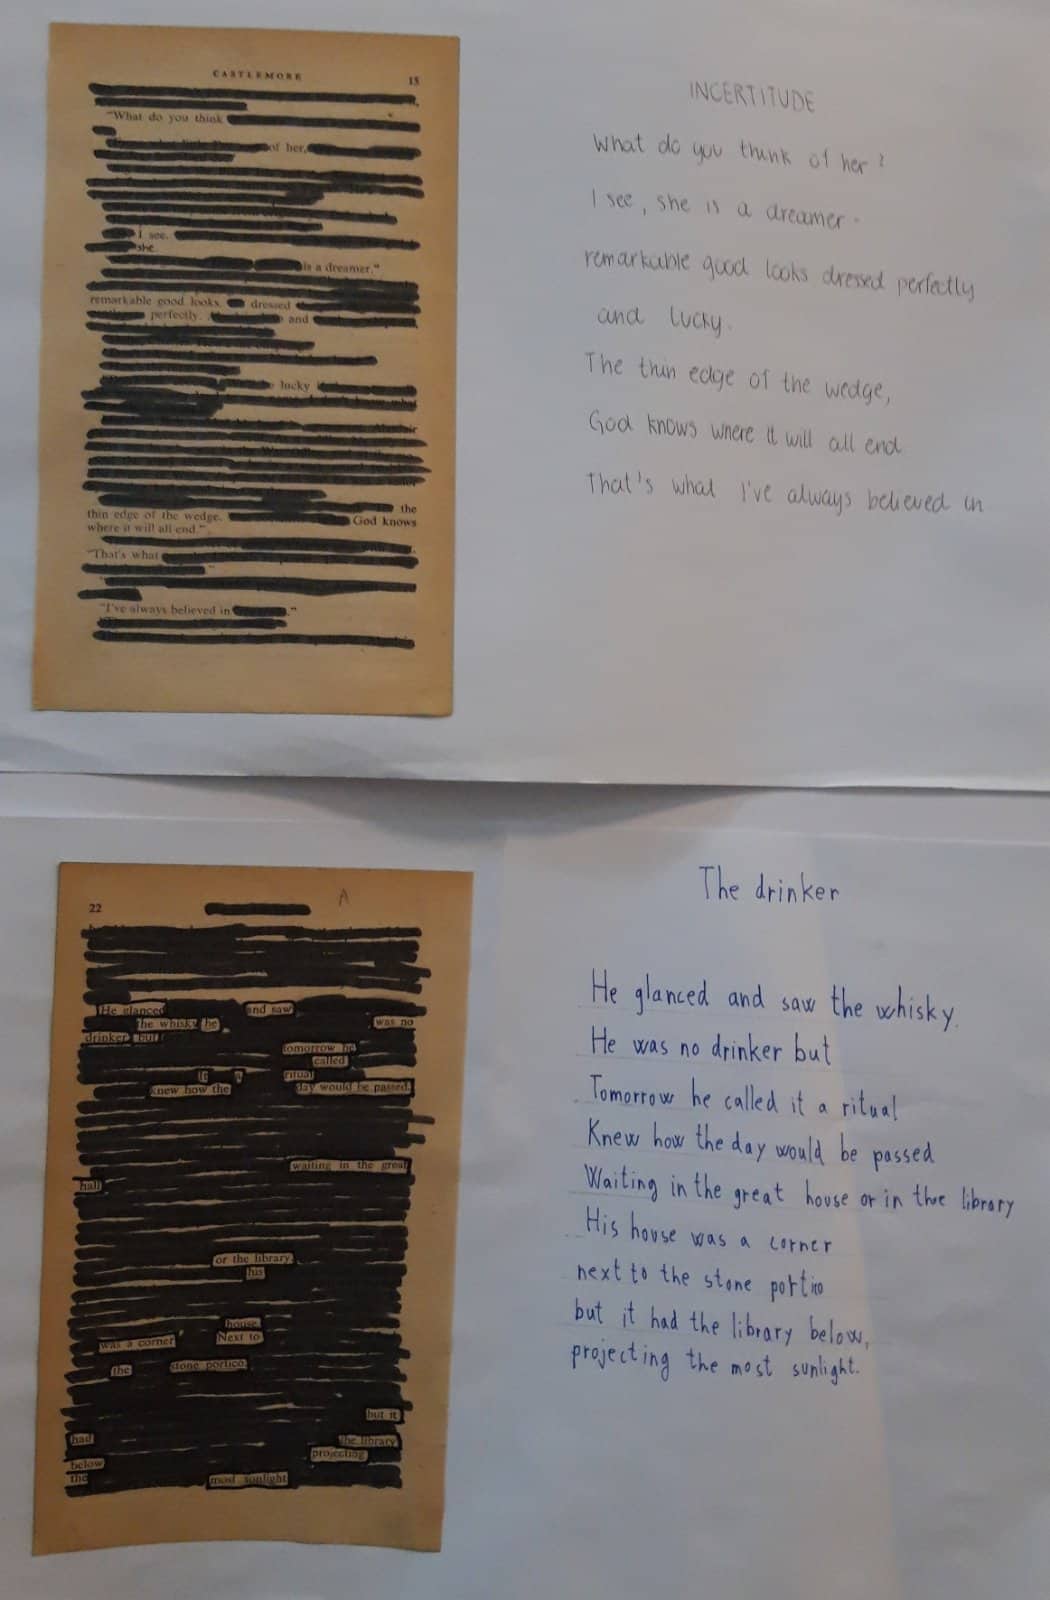 CASTLEMORE 15
"What do you think
of her,
I see.
she
is a dreamer."
remarkable good looks, dressed
perfectly. and
lucky
the
thin edge of the wedge.
God knows
where it will all end."
"That's what
"I've always believed in ."
INCERTITUDE
What do you think of her?
I see, she is a dreamer.
remarkable good looks dressed perfectly
and lucky.
The thin edge of the wedge,
God knows where it will all end
That's what I've always believed in
22
A
He glanced and saw
the whisky he was no
drinker but
tomorrow he
called
it a ritual
knew how the day would be passed.
waiting in the great
hall
or the library
his
house
was a corner Next to
the stone portico
but it
had the library
projecting
below
the most sunlight
The drinker
He glanced and saw the whisky.
He was no drinker but
Tomorrow he called it a ritual
Knew how the day would be passed
Waiting in the great house or in the library
His house was a corner
next to the stone portico
but it had the library below,
projecting the most sunlight.